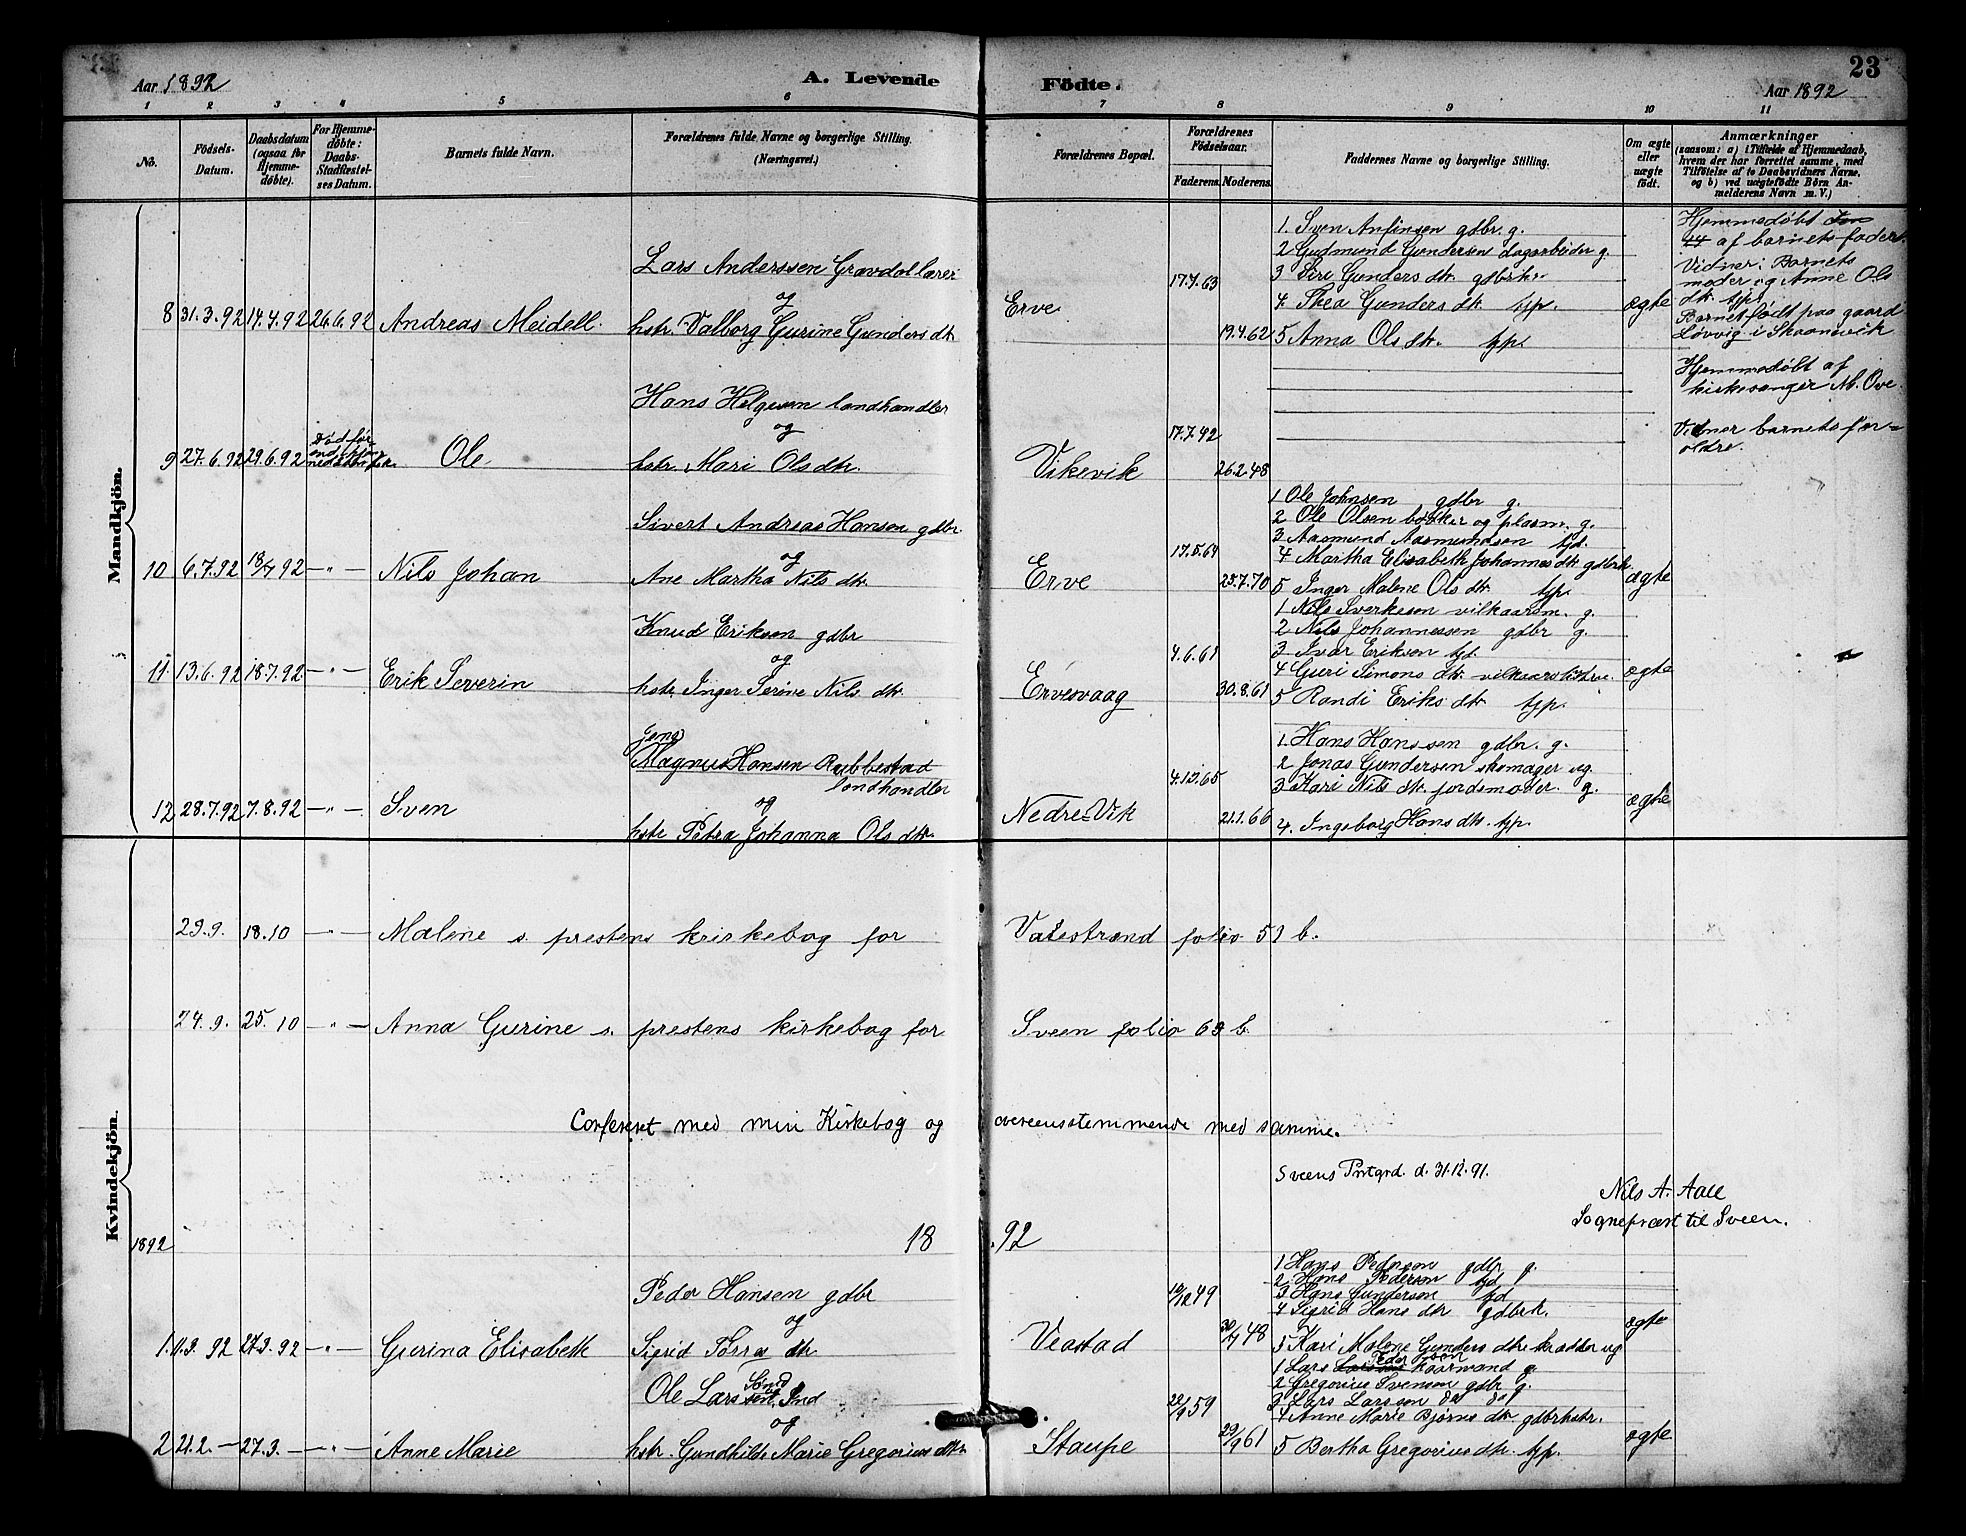 23
Aar 1892
A. Levende Fødte.
Aar 1892
1 2 3 4 5 6 7 8 9 10 11
No.
Fødsels-Datum.
Daabsdatum (ogsaa for Hjemme-døbte).
For Hjemme-døbte: Daabs-Stadfæstel-ses Datum.
Barnets fulde Navn.
Forældrenes fulde Navne og borgerlige Stilling. (Næringsvei.)
Forældrenes Bopæl.
Forældrenes Fødselsaar.
Faderens. Moderens.
Faddernes Navne og borgerlige Stilling.
Om ægte eller uægte født.
Anmærkninger (saasom: a) i Tilfælde af Hjemmedaab, hvem der har forrettet samme, med Tilføielse af to Daabsvidners Navne, og b) ved uægtefødte Børn An-melderens Navn m. V.)
Mandkjøn.
8 31.3.92 14.4.92 26.6.92 Andreas Meidell.
Lars Anderssen Gravdal lærer
og
hstr. Valborg Gurine Gunders dtr.
Erve
17.7.63
19.4.62
1. Sven Anfinsen gdbr. g.
2 Gudmund Gundersen dagarbeider g.
3 Siri Gunders dtr. gdbrk.
4. Thea Gunders dtr. tjp.
5 Anna Ols dtr. tjp.
ægte
Hjemmedøbt den
14 af barnets fader.
Vidner: Barnets
moder og Anne Ols
dtr. tjp.
Barnet født paa gaard
Løvvig i Skaanevik
9 27.6.92 29.6.92
Død før
Ole
Hans Helgesen landhandler
og
hstr. Mari Ols dtr.
Vikevik
17.7.42
26.2.48
Hjemmedøbt af
kirkesanger M. Ove.
Vidner barnets for=
ældre.
10 6.7.92 18/7 92 —"— Nils Johan
Sivert Andreas Hansen gdbr.
og
Ane Martha Nils dtr.
Erve
17.5.64
25.7.70
1 Ole Johnsen gdbr g.
2 Ole Olsen bødker og plasm. g.
3 Aasmund Aasmundsen tjd.
4 Martha Elisabeth Johannes dtr gdbrk.
5 Inger Malene Ols dtr. tjp.
ægte
11. 13.6.92 18.7.92. —"— Erik Severin
Knud Eriksen gdbr
og
hstr Inger Serine Nils dtr.
Ervesvaag
4.6.61
30.8.61
1 Nils Sverkesen vilkaarsm. g.
2 Nils Johannessen gdbr g.
3 Ivar Eriksen tjd.
4 Guri Simons dtr.
5 Randi Eriks dtr tjp.
ægte
12 28.7.92 7.8.92 —"— Sven
Jens
Magnus Hansen Rubbestad
landhandler
og
hstr Petra Johanna Ols dtr.
Nedre=Vik
4.12.65
21.1.66
1. Hans Hanssen gdbr. g.
2 Jonas Gundersen skomager ug.
3 Kari Nils dtr. jordemoder. g.
4. Ingeborg Hans dtr. tjp.
ægte
Kvindekjøn.
29.9. 18.10 —"— Malene s. prestens kirkebog for Valestrand folio 51 b.
24.9. 25.10 —"— Anna Gurine s. prestens kirkebog for Sveen folio 69 b.
Conferert med min Kirkebog og overeensstemmende med samme.
Sveens Prstgrd. d. 31.12.91.
Nils A. Aall
Sognepræst til Sveen.
1892
18 92
1. 11.3.92 27.3.92 —"— Gurina Elisabeth
Peder Hansen gdbr
og
Sigrid Tørres dtr.
Veastad
10/12 49
30/7 48
1 Hans Pedersen gdbr g.
2. Hans Pedersen tjd
3 Hans Gundersen tjd
4 Sigrid Hans dtr gdbrk.
5 Kari Malene Gunders dtr. skrædder ug
ægte
2 21.2. — 27.3. — —"— Anne Marie
Ole Larssen, Ind
og
hstr. Gundhilde Marie Gregorius dtr.
Staupe
22/9 59
29/9 61
1 Lars Pedersen kaarmand g
2 Gregorius Svensen gdbr g.
3 Lars Larssen do do
4 Anne Marie Bjørns dtr gdbrkstr.
5 Bertha Gregorius dtr. tjp.
ægte